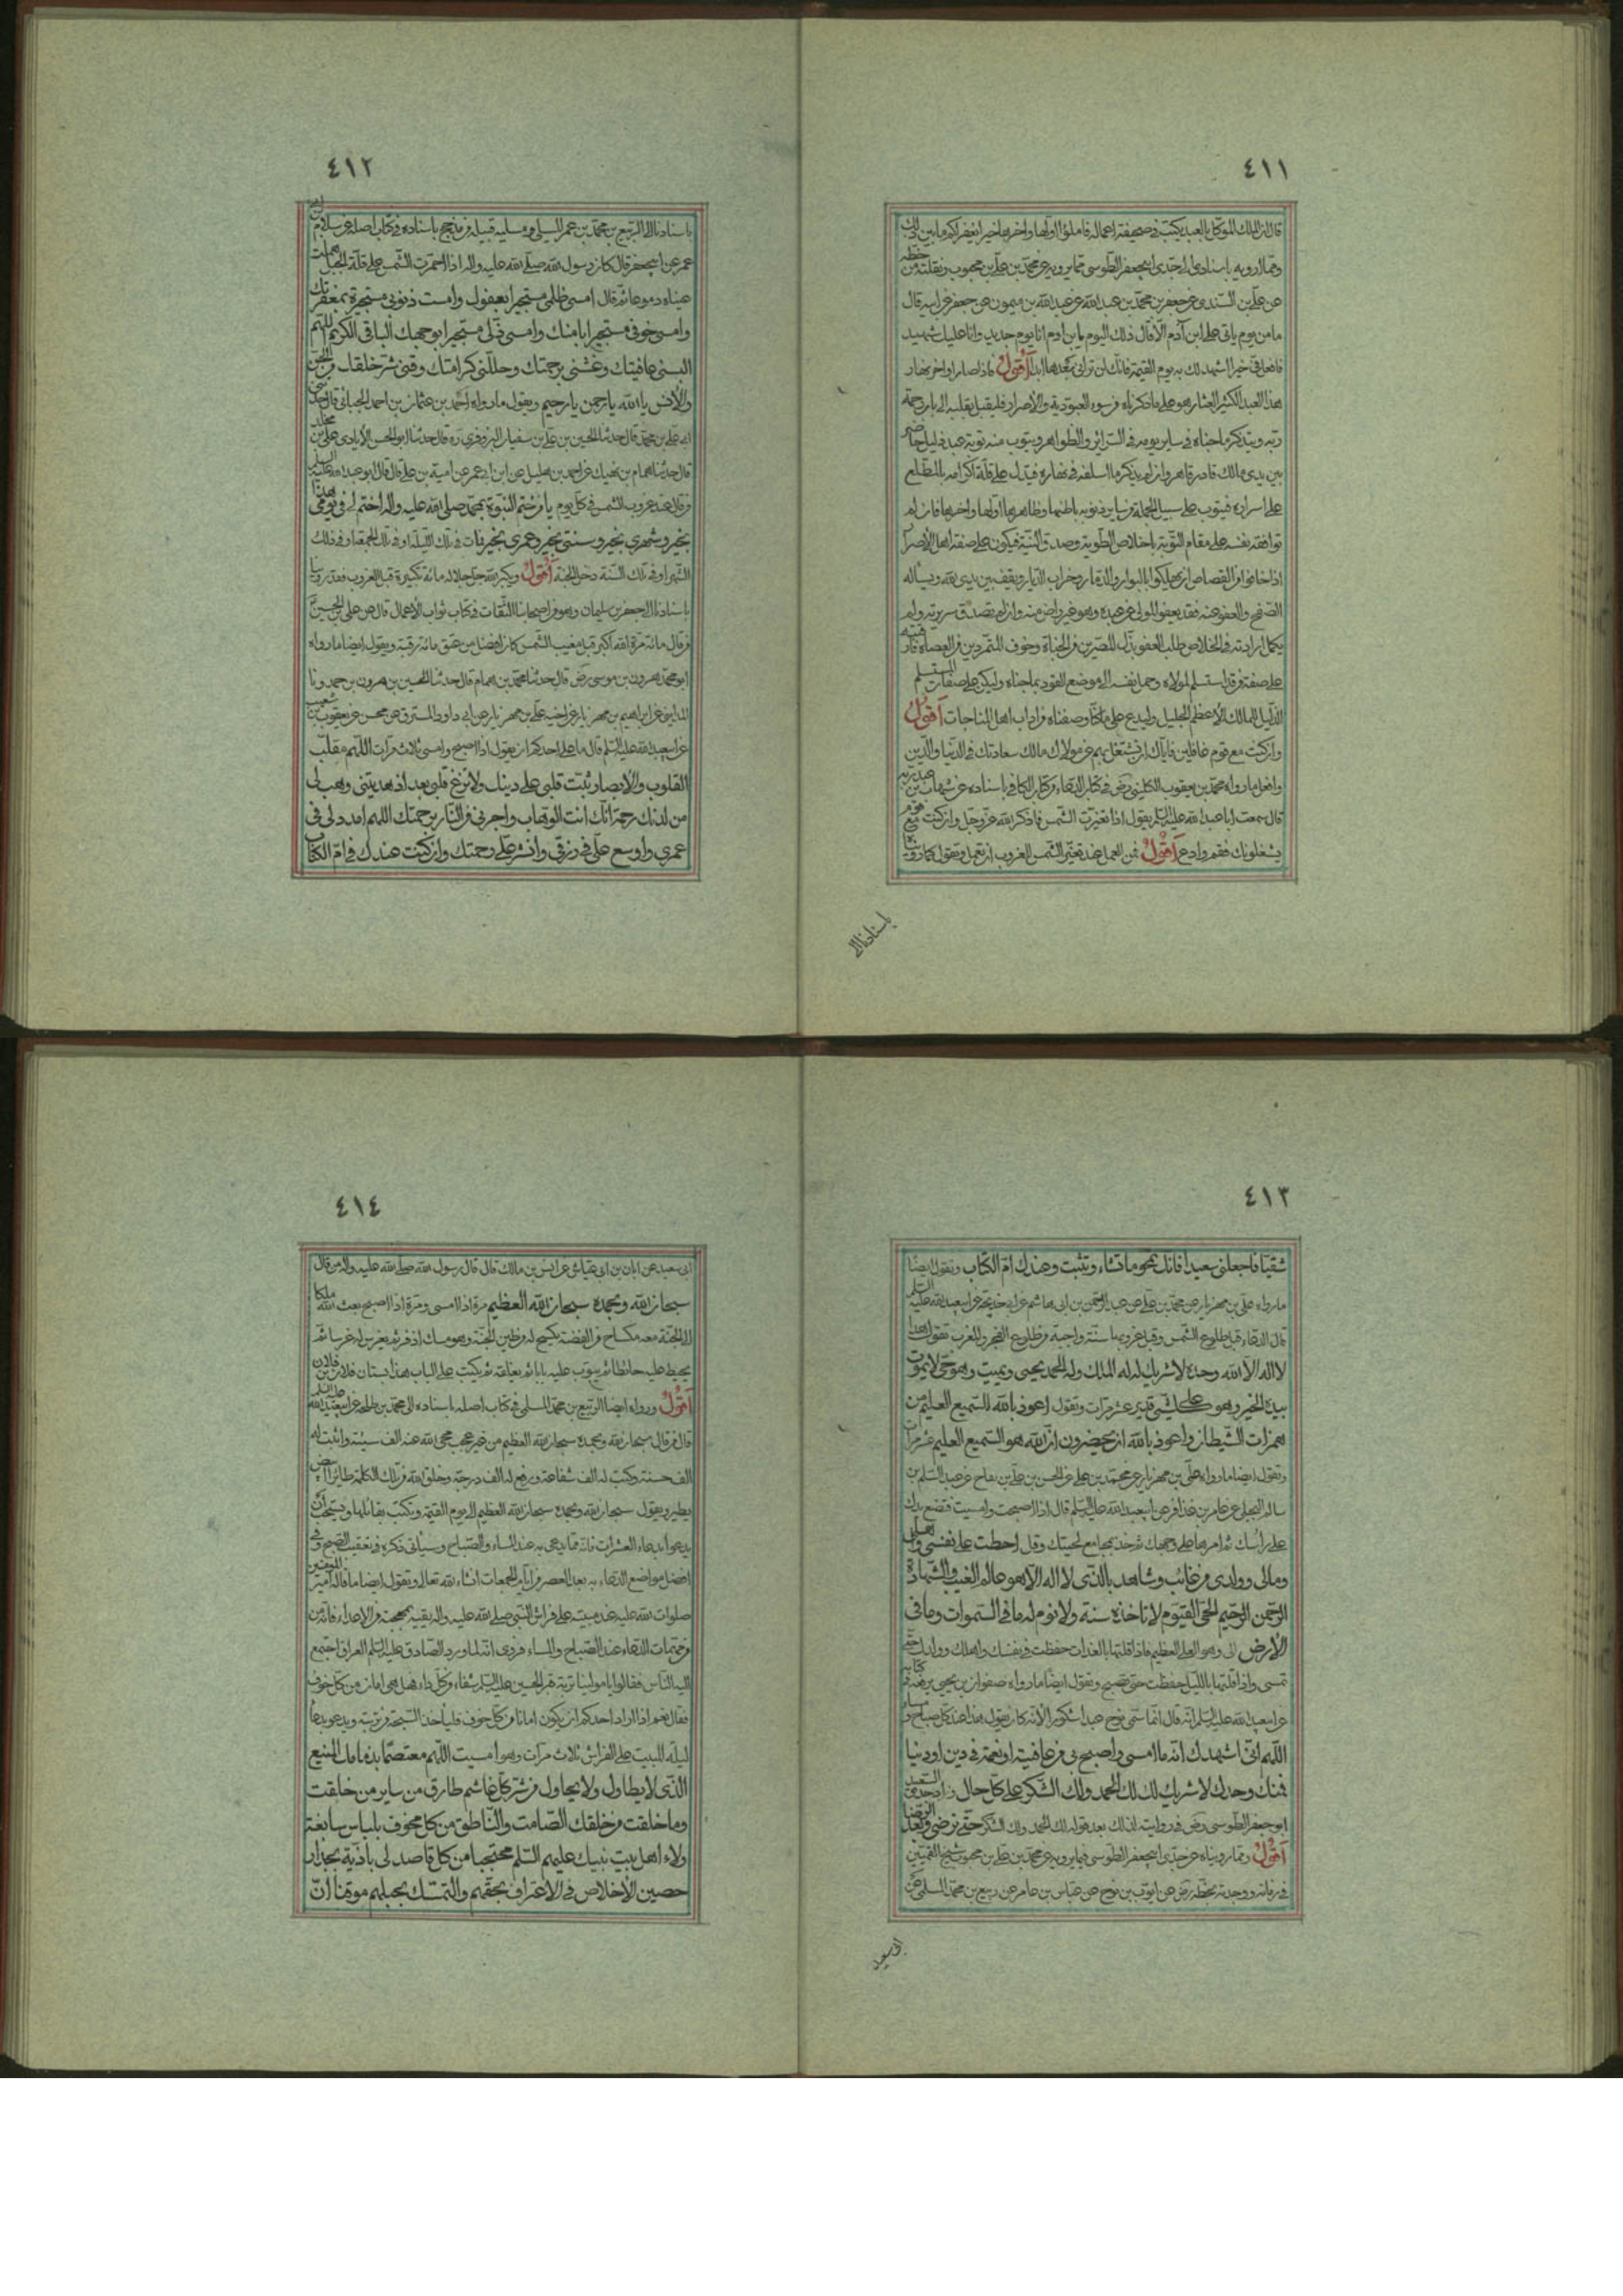 ٤١١
قال ان الملك الموكل بالعبد يكتب فى صحيفة اعماله فاملؤا اولها واخرها خيرا يغفر لكم ما بين ذلك
ومما ارويه باسنادى الى جدى ابيجعفر الطوسى فيما يرويه عن محمد بن على بن محبوب ونقلته من خطه
عن على بن السندى عن جعفر بن محمد بن عبد الله عن عبد الله بن ميمون عن جعفر عن ابيه قال
ما من يوم ياتى على ابن آدم الا قال ذلك اليوم يا بن ادم انا يوم جديد وانا عليك شهيد
فافعل فى خيرا اشهد لك به يوم القيمة فانك لن ترانى بعدها ابدا أقول فاذا صار اواخر نهار
هذا العبد الكثير العثار وهو على ما ذكرناه من سوء العبودية والاصرار فليقبل بقلبه الى باب رحمة
ربه ويتذكر ما جناه فى ساير يومه فى السرائر والظواهر ويتوب منه توبة عبد ذليل حاضر
بين يدى مالك قادر قاهر وان لم يذكر ما اسلفه فى نهاره فيدل على قلة اكرامه بالمطلع
على اسراره فيتوب على سبيل الجملة من ساير ذنوبه باطنها وظاهرها اولها واخرها فان لم
توافقه نفسه على مقام التوبة باخلاص الطوية وصدق النية فيكون على صفة اهل الاصرار
اذا خافوا من القصاص ان يهلكوا بالبوار والدمار وخراب الديار ويقف بين يدى الله ويسأله
الصفح والعفو عنه فقد يعفو المولى عن عبده وهو غير راض منه وان لم تصدق سريرته ولم
يكمل ارادته فى الخلاص طلب العفو بذل المصرين من الجناة وخوف المتمردين من العصاة فان فيه
على صفة من قد استسلم لمولاه وحمل نفسه الى موضع القود بما جناه وليكن على صفات المستسلم
الذليل للمالك الاعظم الجليل وليدع على ما كنا وصفناه من اداب اهل المناجات أقول
وان كنت مع قوم غافلين فاياك ان تشتغل بهم عن مولاك مالك سعادتك فى الدنيا والدين
وافعل ما رواه محمد بن يعقوب الكلينى رض فى كتاب الدعاء من كتاب الكافى باسناده عن شهاب بن عبد ربه
قال سمعت ابا عبد الله عليه السلم يقول اذا تغيرت الشمس فاذكر الله عز وجل وان كنت مع قوم
يشغلونك فقم وادع أقول فمن العمل عند تغير الشمس للغروب ان تعمل وتقول كما رويناه
باسنادنا الى
٤١٢
باسنادنا الى الربيع بن محمد بن عمر المسلى ومسلية قبيلة من مذحج باسناده فى كتاب اصله عن سلام بن
عمر عن ابيجعفر قال كان رسول الله صلى الله عليه واله اذا احمرت الشمس على قلة الجبل هملت
عيناه دموعا ثم قال امسى ظلمى مستجيرا بعفوك وامست ذنوبى مستجيرة بمغفرتك
وامسى خوفى مستجيرا بامنك وامسى ذلى مستجيرا بوجهك الباقى الكريم اللهم
البسنى عافيتك وغشنى برحمتك وجللنى كرامتك وقنى شر خلقك من الجن
والانس يا الله يا رحمن يا رحيم ويقول ما رواه احمد بن عثمان بن احمد الجبائى قال حدثنى
ابى على بن محمد قال حدثنا الحسين بن على بن سفيان البزوفرى ره قال حدثنا ابو الحسن الايادى على بن مخلد
قال حدثنا همام بن نهيك عن احمد بن هليل عن ابن ابى عمير عن امية بن على قال قال ابو عبد الله عليه السلم
من قال عند غروب الشمس فى كل يوم يا من ختم النبوة بمحمد صلى الله عليه واله اختم لى فى يومى هذا
بخير وشهرى بخير وسنتى بخير وعمرى بخير فمات فى تلك الليلة او فى تلك الجمعة او فى ذلك
الشهر او فى تلك السنة دخل الجنة أقول ويكبر الله جل جلاله مائة تكبيرة قبل الغروب فقد روينا
باسنادنا الى جعفر بن سليمان وهو من اصحابنا الثقات فى كتاب ثواب الاعمال قال عن على بن الحسين ع
من قال مائة مرة الله اكبر قبل مغيب الشمس كان افضل من عتق مائة رقبة ويقول ايضا ما رواه
ابو محمد هرون بن موسى رض قال حدثنا محمد بن همام قال حدثنا الحسين بن هرون بن حمدونا
المداينى عن ابراهيم بن مهزيار عن اخيه على بن مهزيار عن ابى داود المسترق عن محسن عن يعقوب بن شعيب
عن ابيعبد الله عليه السلم قال ما على احدكم ان يقول اذا اصبح وامسى ثلاث مرات اللهم مقلب
القلوب والابصار ثبت قلبى على دينك ولا تزغ قلبى بعد اذ هديتنى وهب لى
من لدنك رحمة انك انت الوهاب واجرنى من النار برحمتك اللهم امدد لى فى
عمرى واوسع على فى رزقى وانشر على رحمتك وان كنت عندك فى ام الكتاب
٤١٣
شقيا فاجعلنى سعيدا فانك تمحو ما تشاء وتثبت وعندك ام الكتاب وتقول ايضا
ما رواه على بن مهزيار عن محمد بن على عن عبد الرحمن بن ابى هاشم عن ابى خديجة عن ابيعبد الله عليه السلم
قال الدعاء قبل طلوع الشمس وقبل غروبها سنة واجبة من طلوع الفجر والمغرب تقول هذا
لا اله الا الله وحده لا شريك له له الملك وله الحمد يحيى ويميت وهو حى لا يموت
بيده الخير وهو على كل شئ قدير عشر مرات وتقول اعوذ بالله السميع العليم من
همزات الشيطان واعوذ بالله ان يحضرون ان الله هو السميع العليم عشر مرات
وتقول ايضا ما رواه على بن مهزيار عن محمد بن على عن الحسن بن على بن بقاح عن عبد السلم بن
سالم البجلى عن عامر بن عذافر عن ابيعبد الله عليه السلم قال اذا اصبحت وامسيت فضع يدك
على راسك ثم امرها على وجهك ثم خذ بمجامع لحيتك وقل احطت على نفسى واهلى
ومالى وولدى من غائب وشاهد بالذى لا اله الا هو عالم الغيب والشهادة
الرحمن الرحيم الحى القيوم لا تاخذه سنة ولا نوم له ما فى السموات وما فى
الارض الى وهو العلى العظيم فاذا قلتها بالغداة حفظت فى نفسك واهلك وولدك حتى
تمسى واذا قلتها بالليل حفظت حتى تصبح وتقول ايضا ما رواه صفوان بن يحيى يرفعه فى كتابه
عن ابيعبد الله عليه السلم انه قال انما سمى نوح عبدا شكورا لانه كان يقول هذا عند كل صباح ومساء
اللهم انى اشهدك انه ما امسى واصبح بى من عافية او نعمة فى دين او دنيا
فمنك وحدك لا شريك لك لك الحمد ولك الشكر على كل حال وزاد جدى السعيد
ابو جعفر الطوسى رض فى روايته لذلك بعد قوله لك الحمد ولك الشكر حتى ترضى وبعد الرضا
أقول ومما رويناه عن جدى ابيجعفر الطوسى فيما يرويه عن محمد بن على بن محبوب شيخ القميين
فى زمانه ووجدته بخطه رض عن ايوب بن نوح عن عباس بن عامر عن ربيع بن محمد المسلى عن
ابى سعيد
٤١٤
ابى سعيد عن ابان بن ابى عياش عن انس بن مالك قال قال رسول الله صلى الله عليه واله من قال
سبحان الله وبحمده سبحان الله العظيم مرة اذا امسى ومرة اذا اصبح بعث الله ملكا
الى الجنة معه مكساح من الفضة يكسح له من طين الجنة وهو مسك اذفر ثم يغرس له غرسا ثم
يحيط عليه حائطا ثم يبوب عليه بابا ثم يغلقه ثم يكتب على الباب هذا بستان فلان بن فلان
أقول ورواه ايضا الربيع بن محمد المسلى فى كتاب اصله باسناده الى محمد بن طلحة عن ابيعبد الله عليه السلم
قال من قال سبحان الله وبحمده سبحان الله العظيم من غير عجب محى الله عنه الف سيئة واثبت له
الف حسنة وكتب له الف شفاعة ورفع له الف درجة وخلق الله من تلك الكلمة طائرا ابيض
يطير ويقول سبحان الله وبحمده سبحان الله العظيم الى يوم القيمة وتكتب لقائلها ويستحب ان
يدعو بدعاء العشرات فانه مما يدعى به عند المساء والصباح وسياتى ذكره فى تعقيب الصبح وفى
افضل مواضع الدعاء به بعد العصر من ايام الجمعات انشاء الله تعالى وتقول ايضا ما قاله امير المؤمنين
صلوات الله عليه عند مبيته على فراش النبى صلى الله عليه واله يقيه بمهجته من الاعداء فانه من
مهمات الدعاء عند الصباح والمساء فروى انه لما ورد الصادق عليه السلم العراق اجتمع
اليه الناس فقالوا يا مولينا تربة قبر الحسين عليه السلم شفاء من كل داء فهل هى امان من كل خوف
فقال نعم اذا اراد احدكم ان يكون امانا من كل خوف فلياخذ السبحة من تربته ويدعو بدعاء
ليلة المبيت على الفراش ثلاث مرات وهو امسيت اللهم معتصما بذمامك المنيع
الذى لا يطاول ولا يحاول من شر كل غاشم طارق من ساير من خلقت
وما خلقت من خلقك الصامت والناطق من كل مخوف بلباس سابغة
ولاء اهل بيت نبيك عليهم السلم محتجبا من كل قاصد لى باذية بجدار
حصين الاخلاص فى الاعتراف بحقهم والتمسك بحبلهم موقنا ان